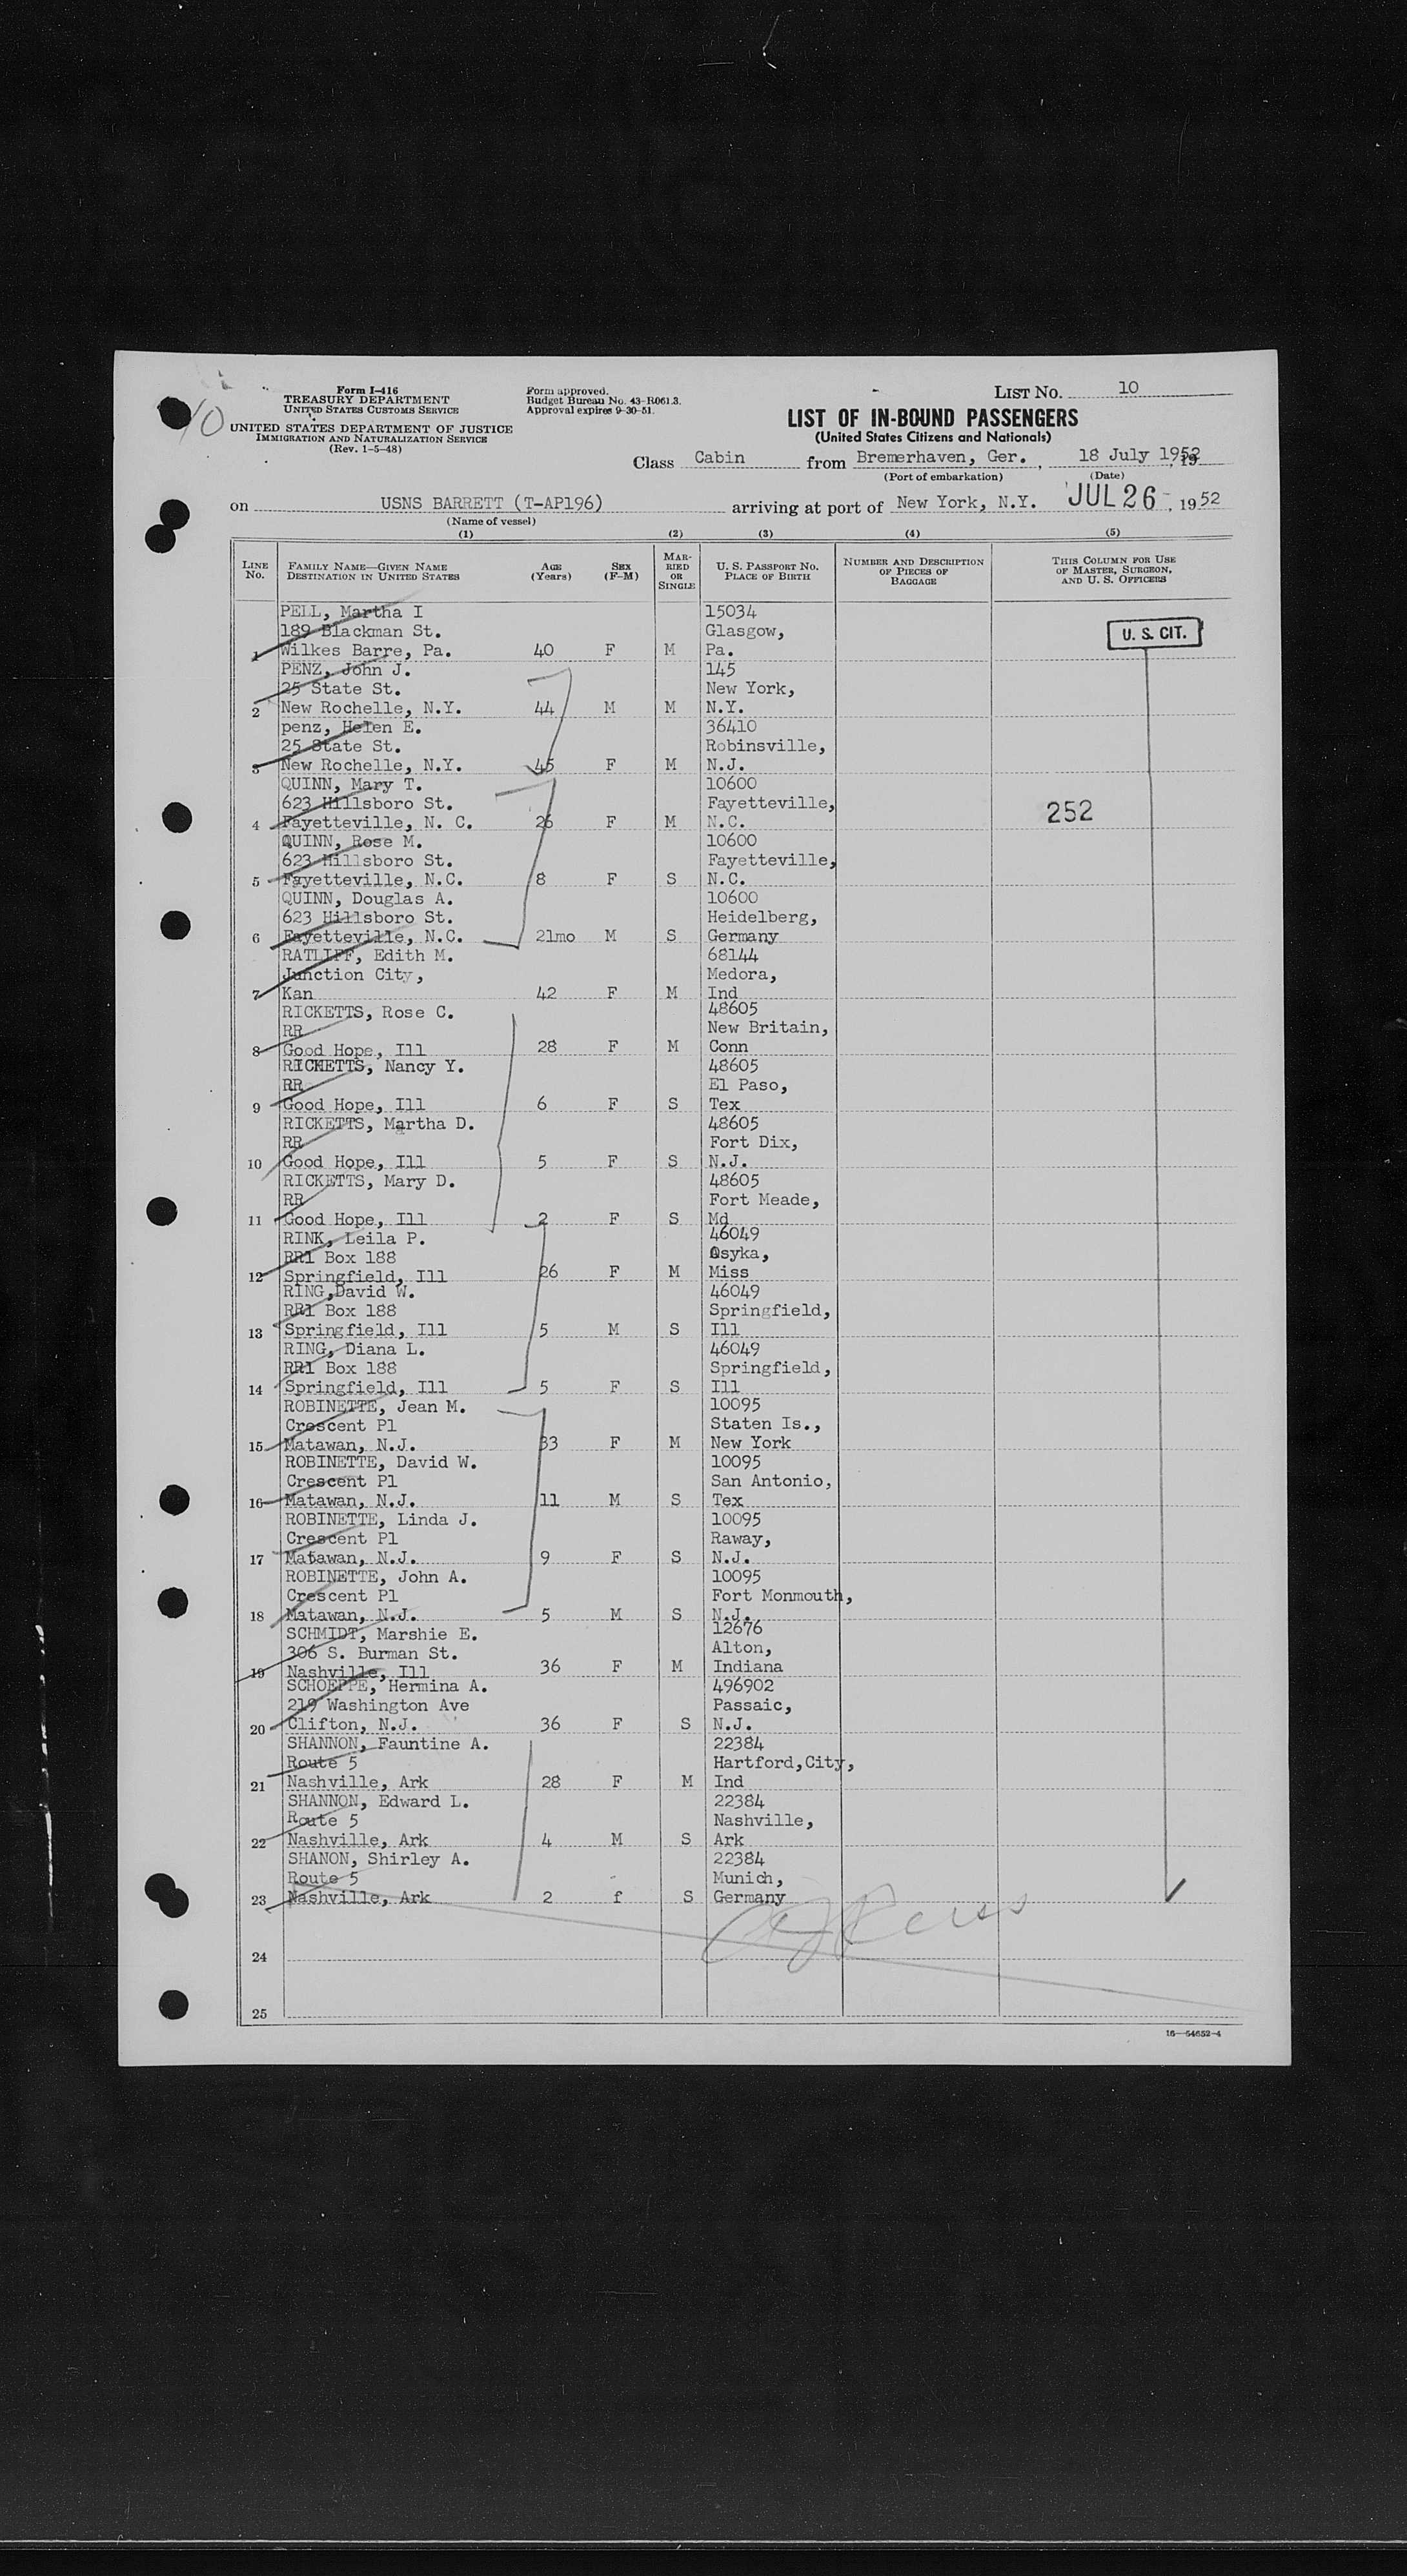 10
Form I-416
TREASURY DEPARTMENT
UNITED STATES CUSTOMS SERVICE
UNITED STATES DEPARTMENT OF JUSTICE
IMMIGRATION AND NATURALIZATION SERVICE
(Rev. 1-5-48)
Form approved.
Budget Bureau No. 43-R061.3.
Approval expires 9-30-51.
LIST NO. 10
LIST OF IN-BOUND PASSENGERS
(United States Citizens and Nationals)
Class Cabin from Bremerhaven, Ger. , 18 July 1952, 19
(Port of embarkation) (Date)
on USNS BARRETT (T-AP196) arriving at port of New York, N.Y. JUL 26 , 1952
(Name of vessel)
(1) (2) (3) (4) (5)
LINE NO. FAMILY NAME—GIVEN NAME DESTINATION IN UNITED STATES AGE (Years) SEX (F-M) MARRIED OR SINGLE U. S. PASSPORT NO. PLACE OF BIRTH NUMBER AND DESCRIPTION OF PIECES OF BAGGAGE THIS COLUMN FOR USE OF MASTER, SURGEON, AND U. S. OFFICERS
PELL, Martha I 15034
189 Blackman St. Glasgow, U. S. CIT.
1 Wilkes Barre, Pa. 40 F M Pa.
PENZ, John J. 145
25 State St. New York,
2 New Rochelle, N.Y. 44 M M N.Y.
penz, Helen E. 36410
25 State St. Robinsville,
3 New Rochelle, N.Y. 45 F M N.J.
QUINN, Mary T. 10600
623 Hillsboro St. Fayetteville, 252
4 Fayetteville, N. C. 26 F M N.C.
QUINN, Rose M. 10600
623 Hillsboro St. Fayetteville,
5 Fayetteville, N.C. 8 F S N.C.
QUINN, Douglas A. 10600
623 Hillsboro St. Heidelberg,
6 Fayetteville, N.C. 21mo M S Germany
RATLIFF, Edith M. 68144
Junction City, Medora,
7 Kan 42 F M Ind
RICKETTS, Rose C. 48605
RR New Britain,
8 Good Hope, Ill 28 F M Conn
RICHETTS, Nancy Y. 48605
RR El Paso,
9 Good Hope, Ill 6 F S Tex
RICKETTS, Martha D. 48605
RR Fort Dix,
10 Good Hope, Ill 5 F S N.J.
RICKETTS, Mary D. 48605
RR Fort Meade,
11 Good Hope, Ill 2 F S Md
RINK, Leila P. 46049
RR1 Box 188 Osyka,
12 Springfield, Ill 26 F M Miss
RING,David W. 46049
RR1 Box 188 Springfield,
13 Springfield, Ill 5 M S Ill
RING, Diana L. 46049
RR1 Box 188 Springfield,
14 Springfield, Ill 5 F S Ill
ROBINETTE, Jean M. 10095
Crescent Pl Staten Is.,
15 Matawan, N.J. 33 F M New York
ROBINETTE, David W. 10095
Crescent Pl San Antonio,
16 Matawan, N.J. 11 M S Tex
ROBINETTE, Linda J. 10095
Crescent Pl Raway,
17 Matawan, N.J. 9 F S N.J.
ROBINETTE, John A. 10095
Crescent Pl Fort Monmouth,
18 Matawan, N.J. 5 M S N.J.
SCHMIDT, Marshie E. 12676
306 S. Burman St. Alton,
19 Nashville, Ill 36 F M Indiana
SCHOEPPE, Hermina A. 496902
219 Washington Ave Passaic,
20 Clifton, N.J. 36 F S N.J.
SHANNON, Fauntine A. 22384
Route 5 Hartford,City,
21 Nashville, Ark 28 F M Ind
SHANNON, Edward L. 22384
Route 5 Nashville,
22 Nashville, Ark 4 M S Ark
SHANON, Shirley A. 22384
Route 5 Munich,
23 Nashville, Ark 2 f S Germany
24
25
16—54652-4